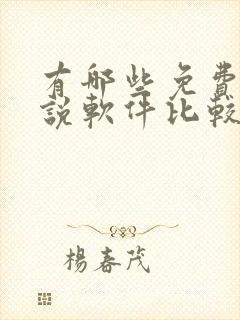 有哪些免費
說軟件比較
楊春茂